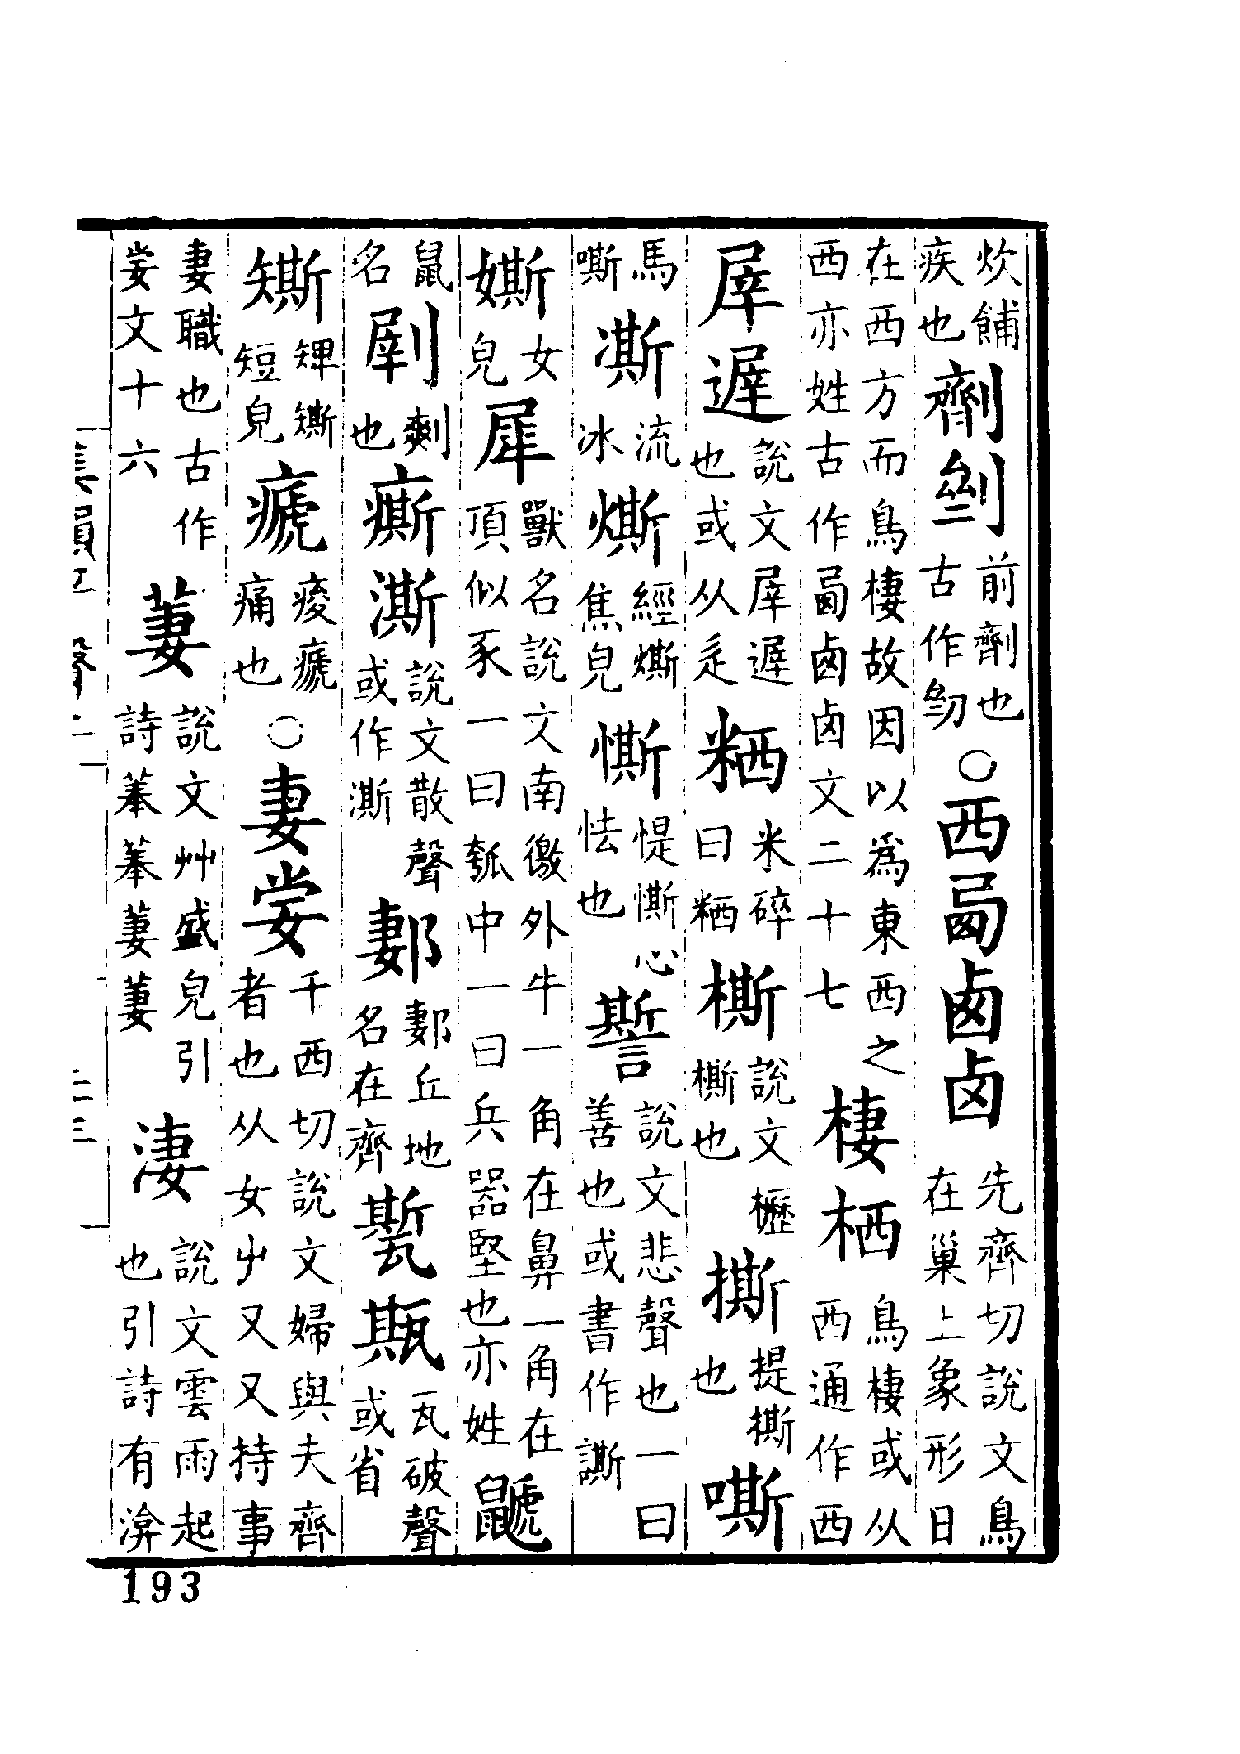 炊餔疾也劑前劑也古作○西卥卤先齊切說文鳥在巢上象形日
在西方而鳥棲故因以爲東西之西亦姓古作卥卤文二十七棲栖鳥棲或从西通作西
屖遟說文屖遟也或从辵粞米碎曰粞㯕說文櫪㯕也撕提撕也嘶
馬嘶澌流冰燍經燍焦皃㒋惿心怯也說文悲聲也一曰善也或書作
㜞女皃犀獸名說文南徼外牛一角在鼻一角在頂似豕一曰瓠中一曰兵器堅也亦姓鼶
鼠名剩也廝澌說文散聲或作澌郪郪丘地名在齊瓦破聲或省
短皃痠痛也○妻千西切說文婦與夫齊者也从女屮又又持事
妻職也古作文十六萋說文艸盛皃引詩菶菶萋萋淒說文雲雨起也引詩有渰
集韻平聲二
二三
193